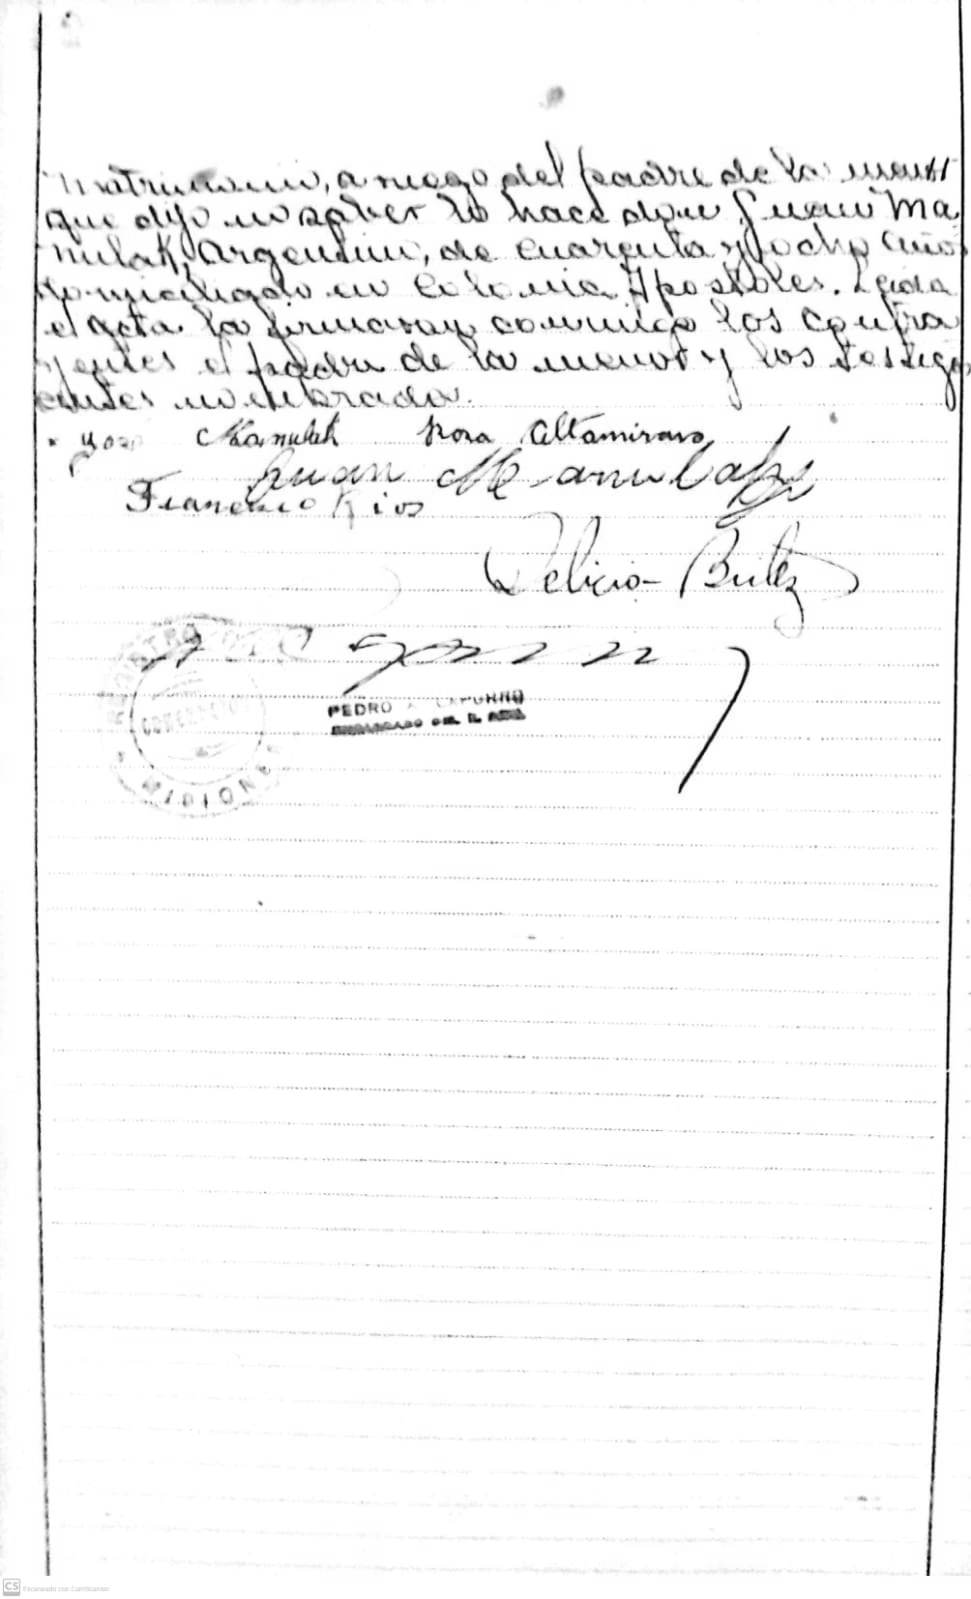 matrimonio, a ruego del padre de la menor
que dijo no saber lo hace don Juan Ma
nulak, Argentino, de cuarenta y ocho años
domiciliado en Colonia Apóstoles. Leida
el acta la firmaron conmigo los contra
yentes el padre de la menor y los testigos
antes nombrados.
José Manulak Rosa Altamirano
Juan Manulak
Francisco Rios
Delicio Britez
REGISTRO CIVIL
CONCEPCION
MISIONES
PEDRO A. CAPURRO
ENCARGADO DEL R. CIVIL
CS Escaneado con CamScanner